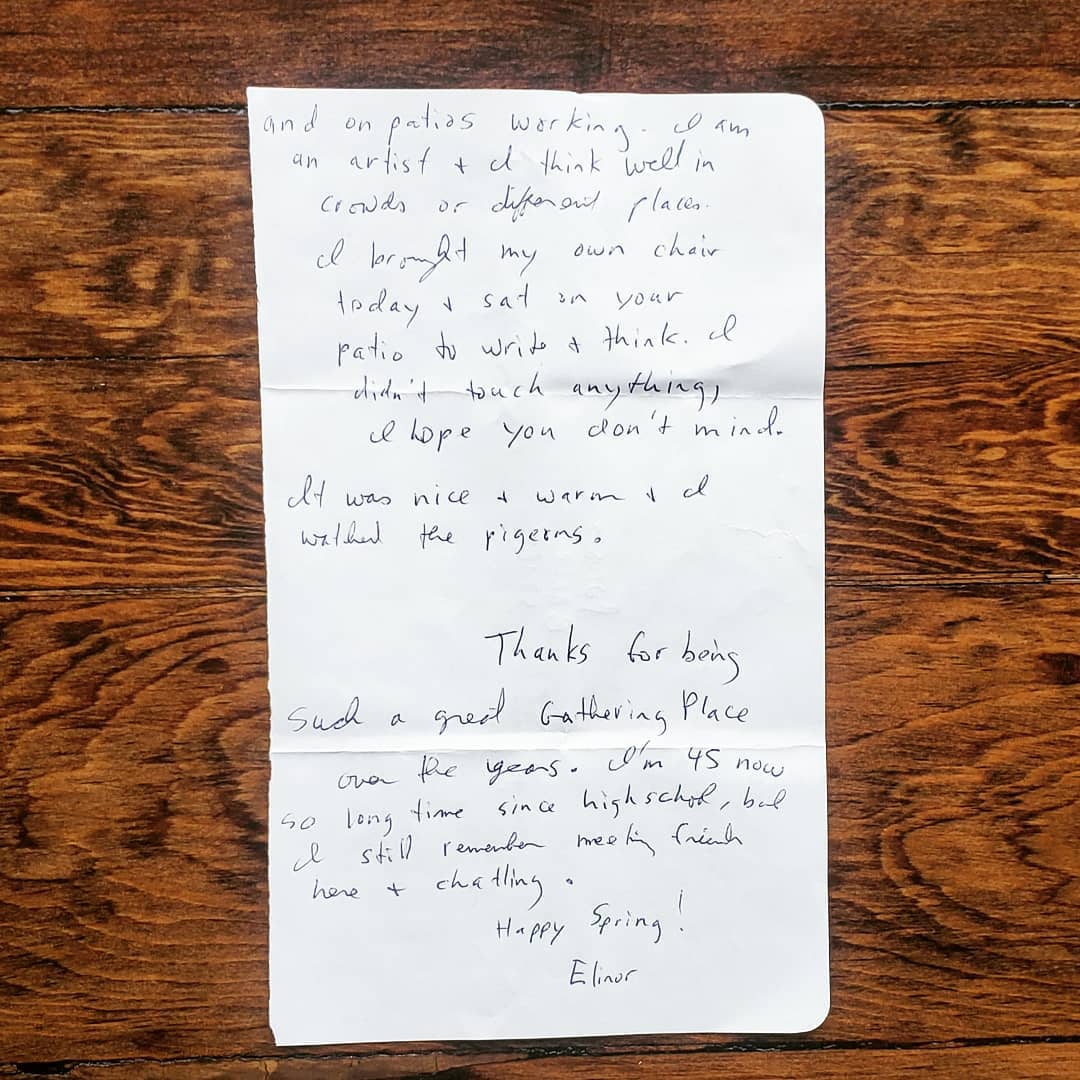 and on patios working. I am
an artist + I think well in
crowds or different places.
I brought my own chair
today + sat on your
patio to write + think. I
didn't touch anything,
I hope you don't mind.
It was nice + warm + I
watched the pigeons.
Thanks for being
such a great Gathering Place
over the years. I'm 45 now
so long time since highschool, but
I still remember meeting friends
here + chatting.
Happy Spring!
Elinor